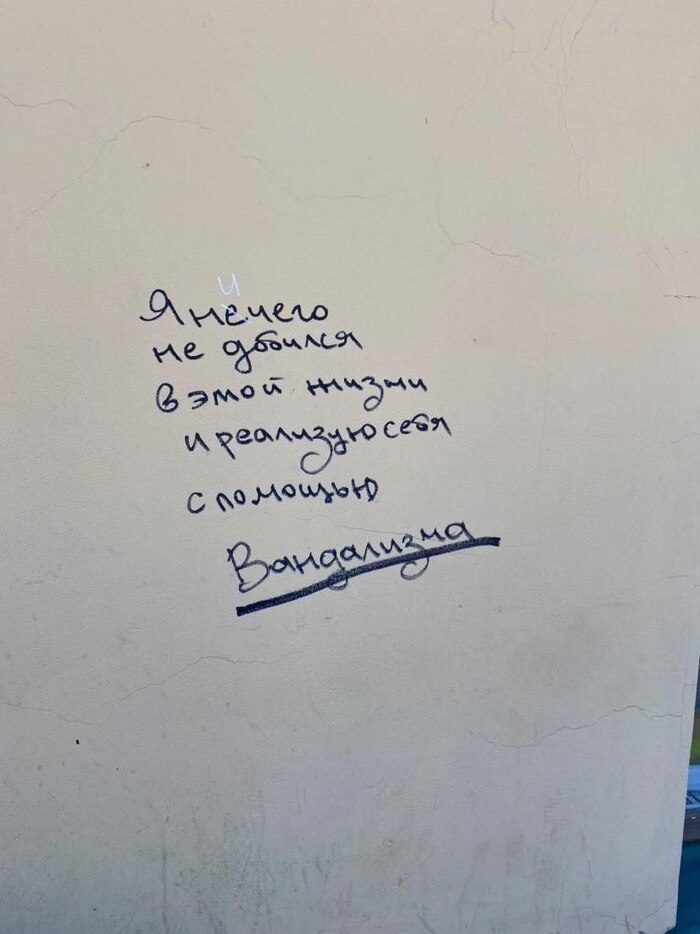 Я нечего
и
не добился
в этой жизни
и реализую себя
с помощью
Вандализма